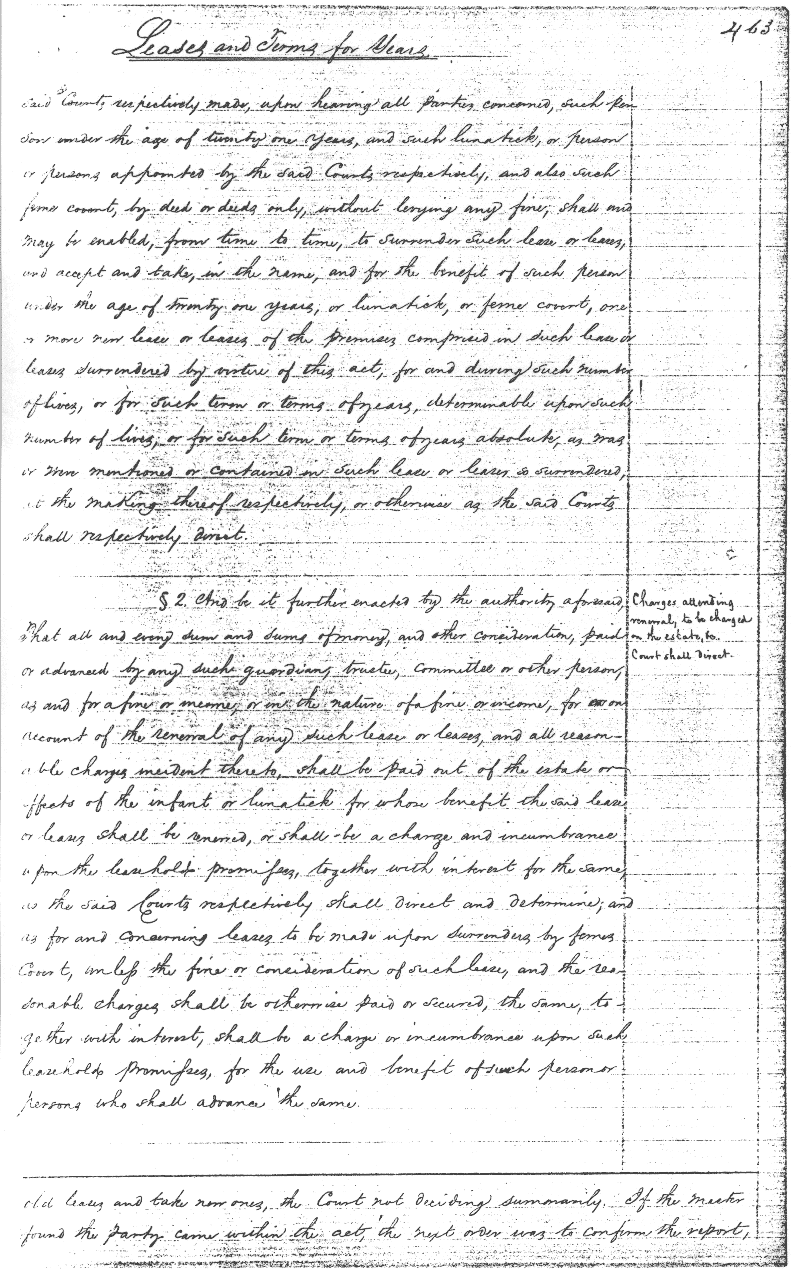 463
Leases and Terms for Years
said Courts respectively made, upon hearing all parties concerned, such per
son under the age of twenty one years, and such lunatick, or person
or persons appointed by the said Courts respectively, and also such
feme covert, by deed or deeds only, without levying any fine, shall and
may be enabled, from time to time, to surrender such lease or leases,
and accept and take, in the name, and for the benefit of such person
under the age of twenty one years, or lunatick, or feme covert, one
or more new lease or leases of the premises comprised in such lease or
leases surrendered by virtue of this act, for and during such number
of lives, or for such term or terms of years, determinable upon such
number of lives, or for such term or terms of years absolute, as was
or were mentioned or contained in such lease or leases so surrendered,
at the making thereof respectively, or otherwise as the said Courts
shall respectively direct.
§ 2. And be it further enacted by the authority aforesaid,
That all and every sum and sums of money, and other consideration, paid
or advanced by any such guardian, trustee, committee or other person,
as and for a fine or income, or in the nature of a fine or income, for or on
account of the renewal of any such lease or leases, and all reason-
able charges incident thereto, shall be paid out of the estate or
effects of the infant or lunatick for whose benefit the said lease
or leases shall be renewed, or shall be a charge and incumbrance
upon the leasehold premisses, together with interest for the same,
as the said Courts respectively shall direct and determine; and
as for and concerning leases to be made upon surrenders by femes
Covert, unless the fine or consideration of such lease, and the rea-
sonable charges shall be otherwise paid or secured, the same, to-
gether with interest, shall be a charge or incumbrance upon such
leasehold premisses, for the use and benefit of such person or
persons who shall advance the same.
Charges attending
renewal, to be charged
on the estate, &c.
Court shall direct.
old leases and take new ones, the Court not deciding summarily. If the master
found the party came within the act, the next order was to confirm the report,